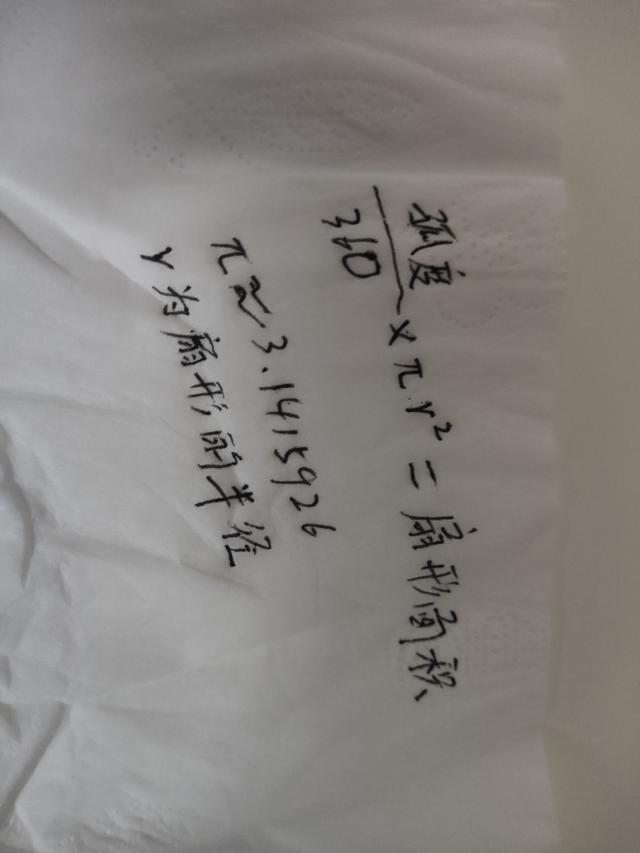 弧度
360
×πr²=扇形面积
π≈3.1415926
r为扇形的半径